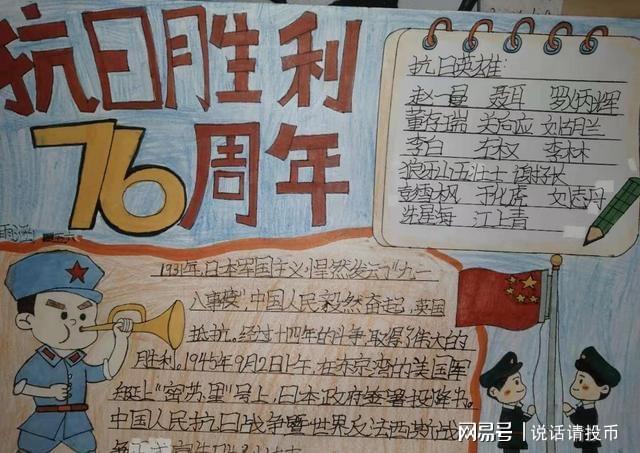 抗日胜利
76周年
抗日英雄:
赵一曼 聂耳 罗炳辉
董存瑞 关向应 刘胡兰
李白 左权 李林
狼牙山五壮士 谢晋元
彭雪枫 王化虎 刘志丹
冼星海 江上青
1931年,日本军国主义悍然发动了"九一
八事变",中国人民毅然奋起,英国
抵抗。经过十四年的斗争,取得了伟大的
胜利。1945年9月2日上午,在东京湾的美国军
舰上"密苏里"号上,日本政府签署投降书。
中国人民抗日战争暨世界反法西斯战
网易号 | 说话请投币